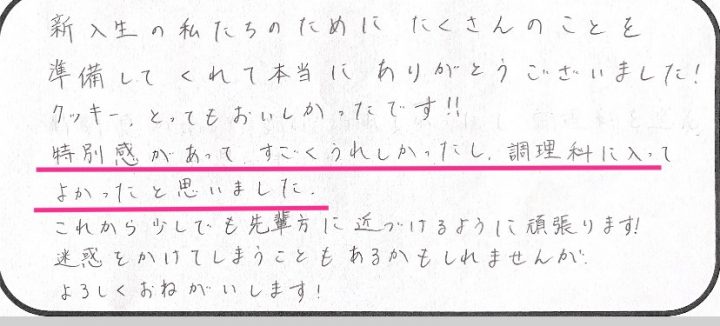 新入生の私たちのためにたくさんのことを
準備してくれて本当にありがとうございました!
クッキー、とってもおいしかったです!!
特別感があって、すごくうれしかったし、調理科に入って
よかったと思いました。
これから少しでも先輩方に近づけるように頑張ります!
迷惑をかけてしまうこともあるかもしれませんが、
よろしくおねがいします!